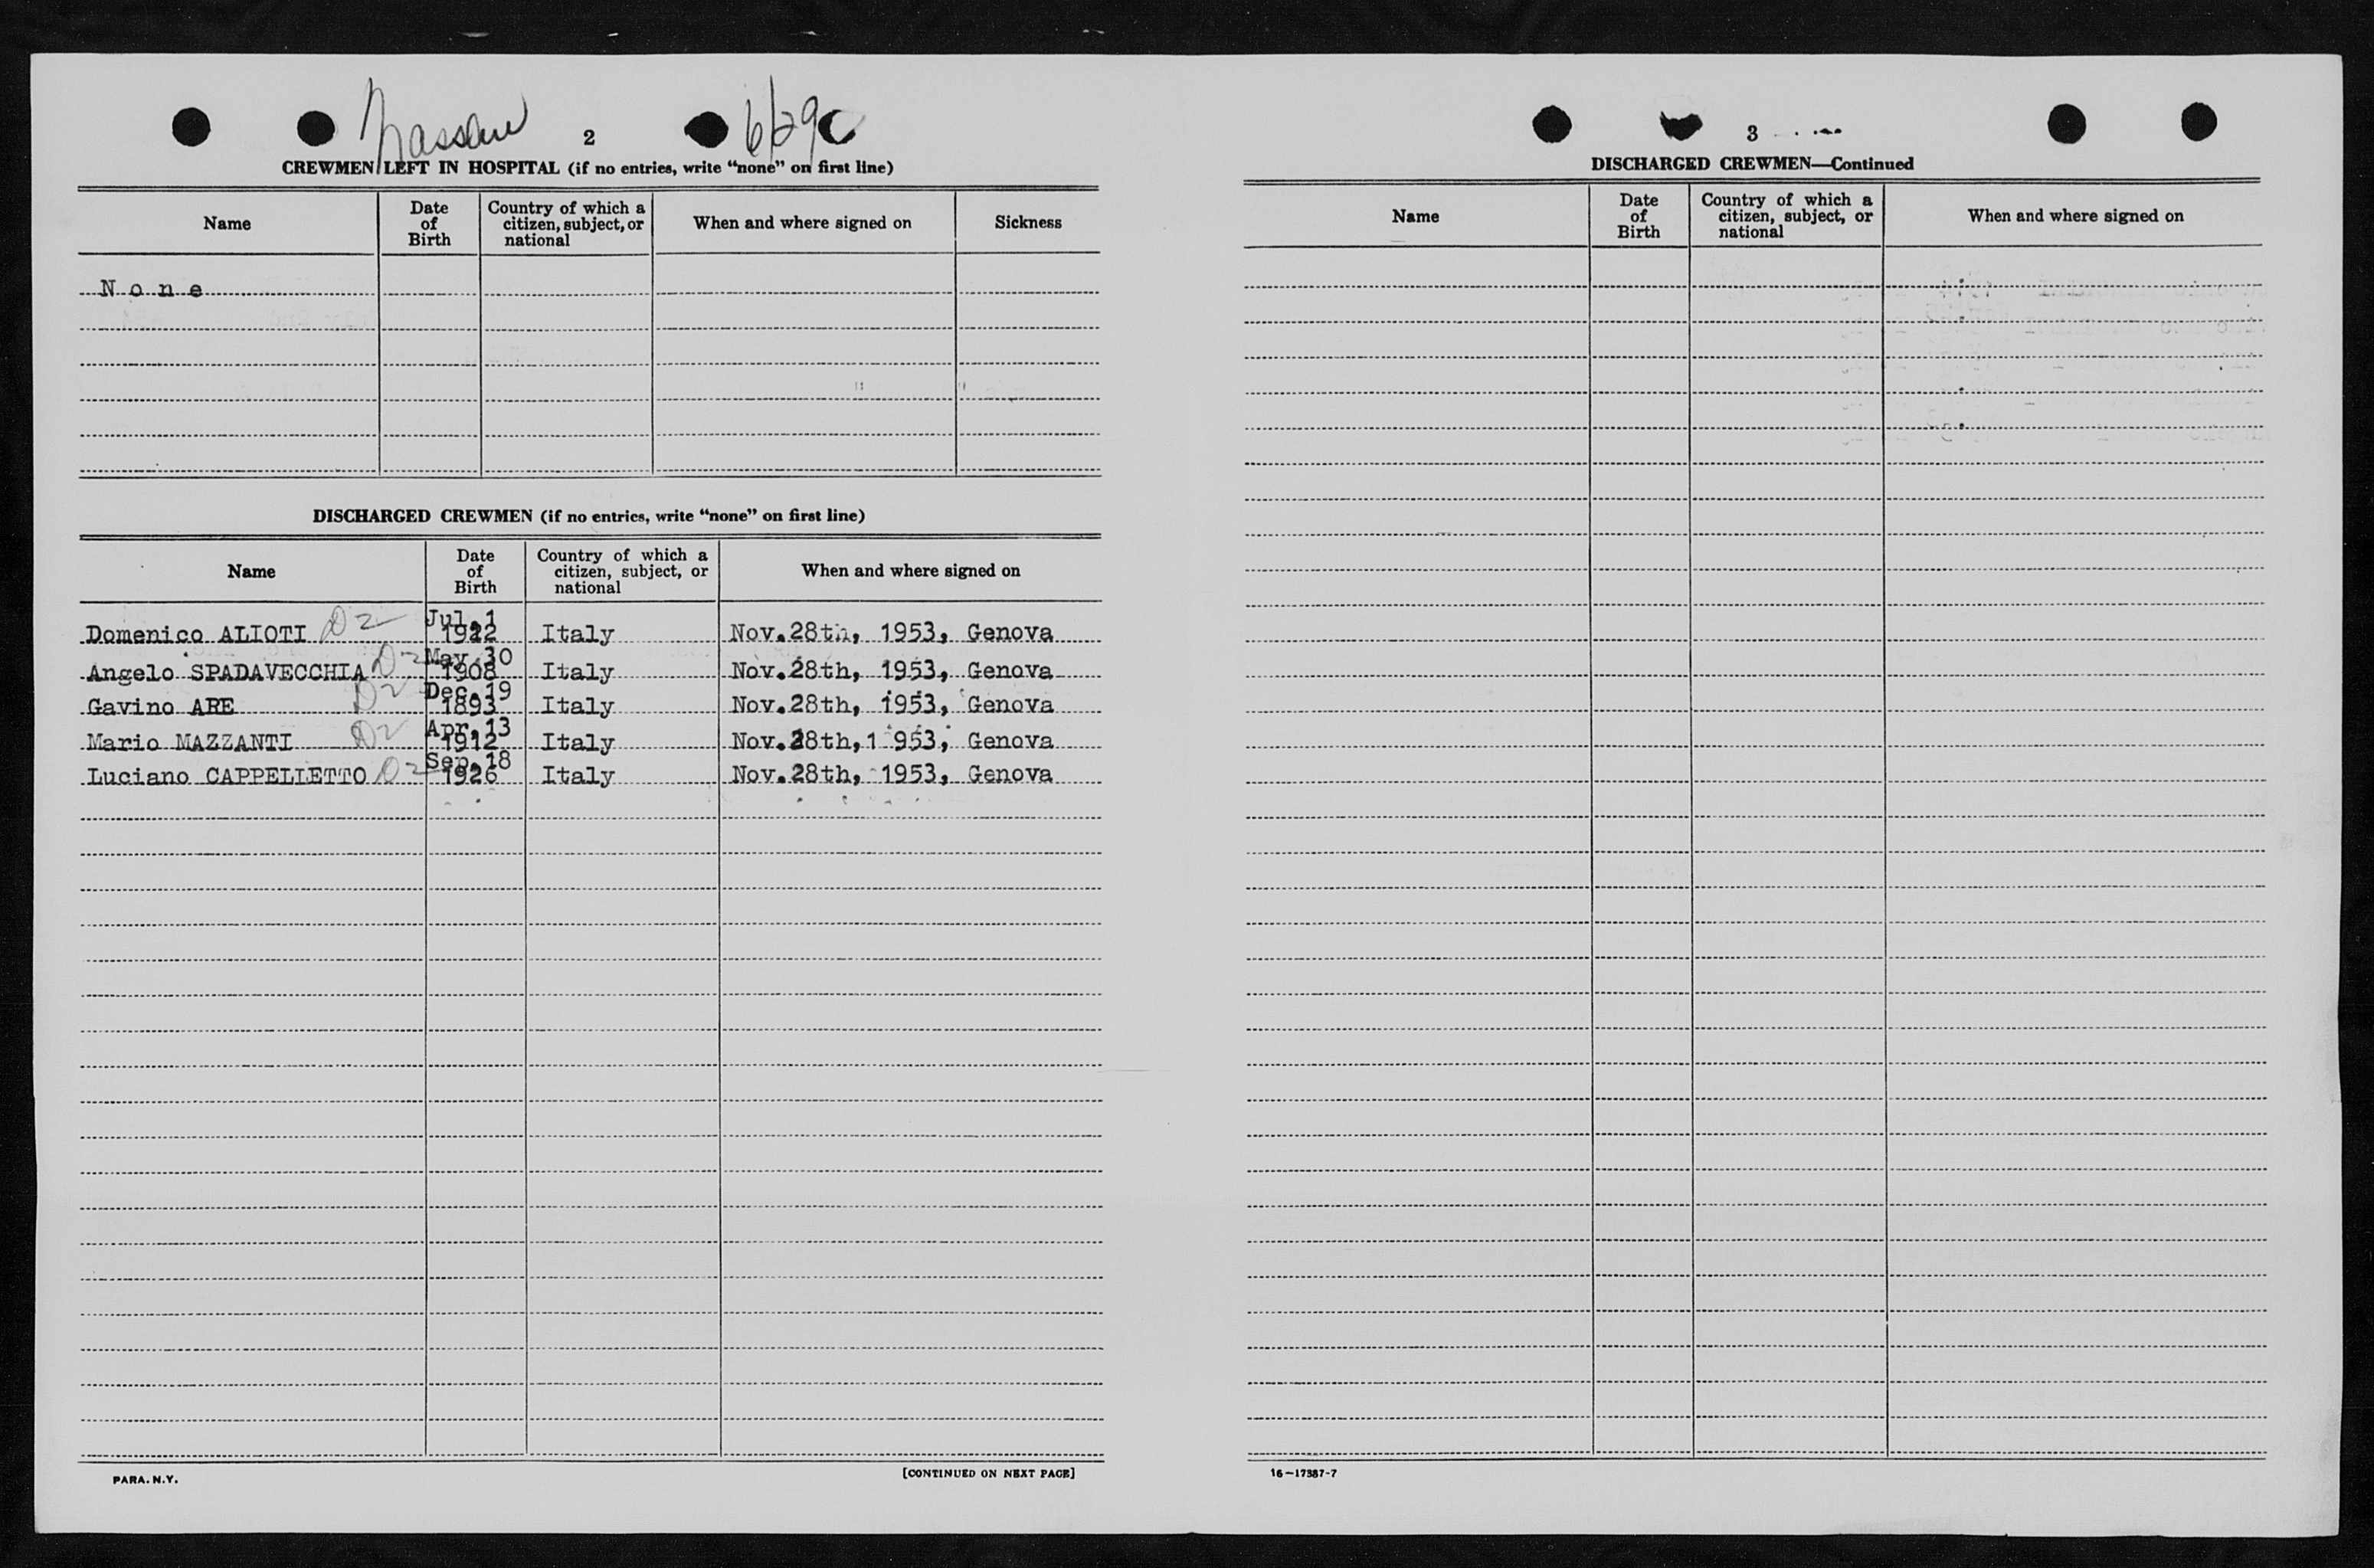 Nassau 2 6/29
CREWMEN LEFT IN HOSPITAL (if no entries, write “none” on first line)
Name Date of Birth Country of which a citizen, subject, or national When and where signed on Sickness
None
DISCHARGED CREWMEN (if no entries, write “none” on first line)
Name Date of Birth Country of which a citizen, subject, or national When and where signed on
Domenico ALIOTI D2 Jul.1 1922 Italy Nov.28th, 1953, Genova
Angelo SPADAVECCHIA D2 May 30 1908 Italy Nov.28th, 1953, Genova
Gavino ARE D2 Dec.19 1893 Italy Nov.28th, 1953, Genova
Mario MAZZANTI D2 Apr.13 1912 Italy Nov.28th,1 953, Genova
Luciano CAPPELLETTO D2 Sep.18 1926 Italy Nov.28th, 1953, Genova
PARA. N.Y. [CONTINUED ON NEXT PAGE]
3
DISCHARGED CREWMEN—Continued
Name Date of Birth Country of which a citizen, subject, or national When and where signed on
16—17387-7